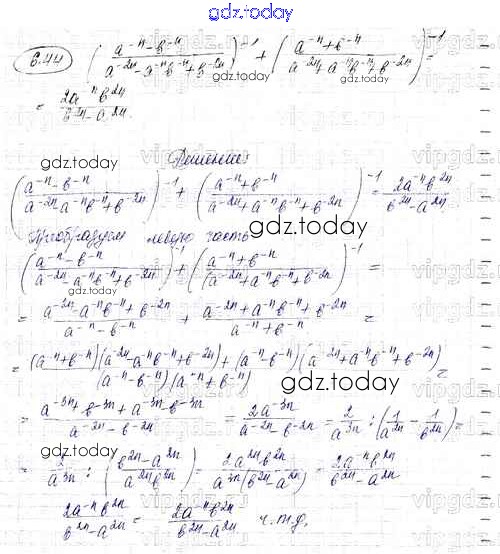 gdz.today
6.44 ((a⁻ⁿ-b⁻ⁿ)/(a⁻²ⁿ-a⁻ⁿb⁻ⁿ+b⁻²ⁿ))⁻¹ + ((a⁻ⁿ+b⁻ⁿ)/(a⁻²ⁿ+a⁻ⁿb⁻ⁿ+b⁻²ⁿ))⁻¹ =
gdz.today
gdz.today
= 2a⁻ⁿb²ⁿ/(b²ⁿ-a²ⁿ).
gdz.today
Решение:
((a⁻ⁿ-b⁻ⁿ)/(a⁻²ⁿ-a⁻ⁿb⁻ⁿ+b⁻²ⁿ))⁻¹ + ((a⁻ⁿ+b⁻ⁿ)/(a⁻²ⁿ+a⁻ⁿb⁻ⁿ+b⁻²ⁿ))⁻¹ = 2a⁻ⁿb²ⁿ/(b²ⁿ-a²ⁿ)
gdz.today
Преобразуем левую часть
gdz.today
((a⁻ⁿ-b⁻ⁿ)/(a⁻²ⁿ-a⁻ⁿb⁻ⁿ+b⁻²ⁿ))⁻¹ + ((a⁻ⁿ+b⁻ⁿ)/(a⁻²ⁿ+a⁻ⁿb⁻ⁿ+b⁻²ⁿ))⁻¹ =
gdz.today
= (a⁻²ⁿ-a⁻ⁿb⁻ⁿ+b⁻²ⁿ)/(a⁻ⁿ-b⁻ⁿ) + (a⁻²ⁿ+a⁻ⁿb⁻ⁿ+b⁻²ⁿ)/(a⁻ⁿ+b⁻ⁿ) =
= ((a⁻ⁿ+b⁻ⁿ)(a⁻²ⁿ-a⁻ⁿb⁻ⁿ+b⁻²ⁿ)+(a⁻ⁿ-b⁻ⁿ)(a⁻²ⁿ+a⁻ⁿb⁻ⁿ+b⁻²ⁿ))/((a⁻ⁿ-b⁻ⁿ)(a⁻ⁿ+b⁻ⁿ)) =
gdz.today
= (a⁻³ⁿ+b⁻³ⁿ+a⁻³ⁿ-b⁻³ⁿ)/(a⁻²ⁿ-b⁻²ⁿ) = 2a⁻³ⁿ/(a⁻²ⁿ-b⁻²ⁿ) = 2/a³ⁿ : (1/a²ⁿ - 1/b²ⁿ) =
= 2/a³ⁿ : ((b²ⁿ-a²ⁿ)/(a²ⁿb²ⁿ)) = 2a²ⁿb²ⁿ/(a³ⁿ(b²ⁿ-a²ⁿ)) = 2a⁻ⁿb²ⁿ/(b²ⁿ-a²ⁿ)
gdz.today
2a⁻ⁿb²ⁿ/(b²ⁿ-a²ⁿ) = 2a⁻ⁿb²ⁿ/(b²ⁿ-a²ⁿ) ч.т.д.